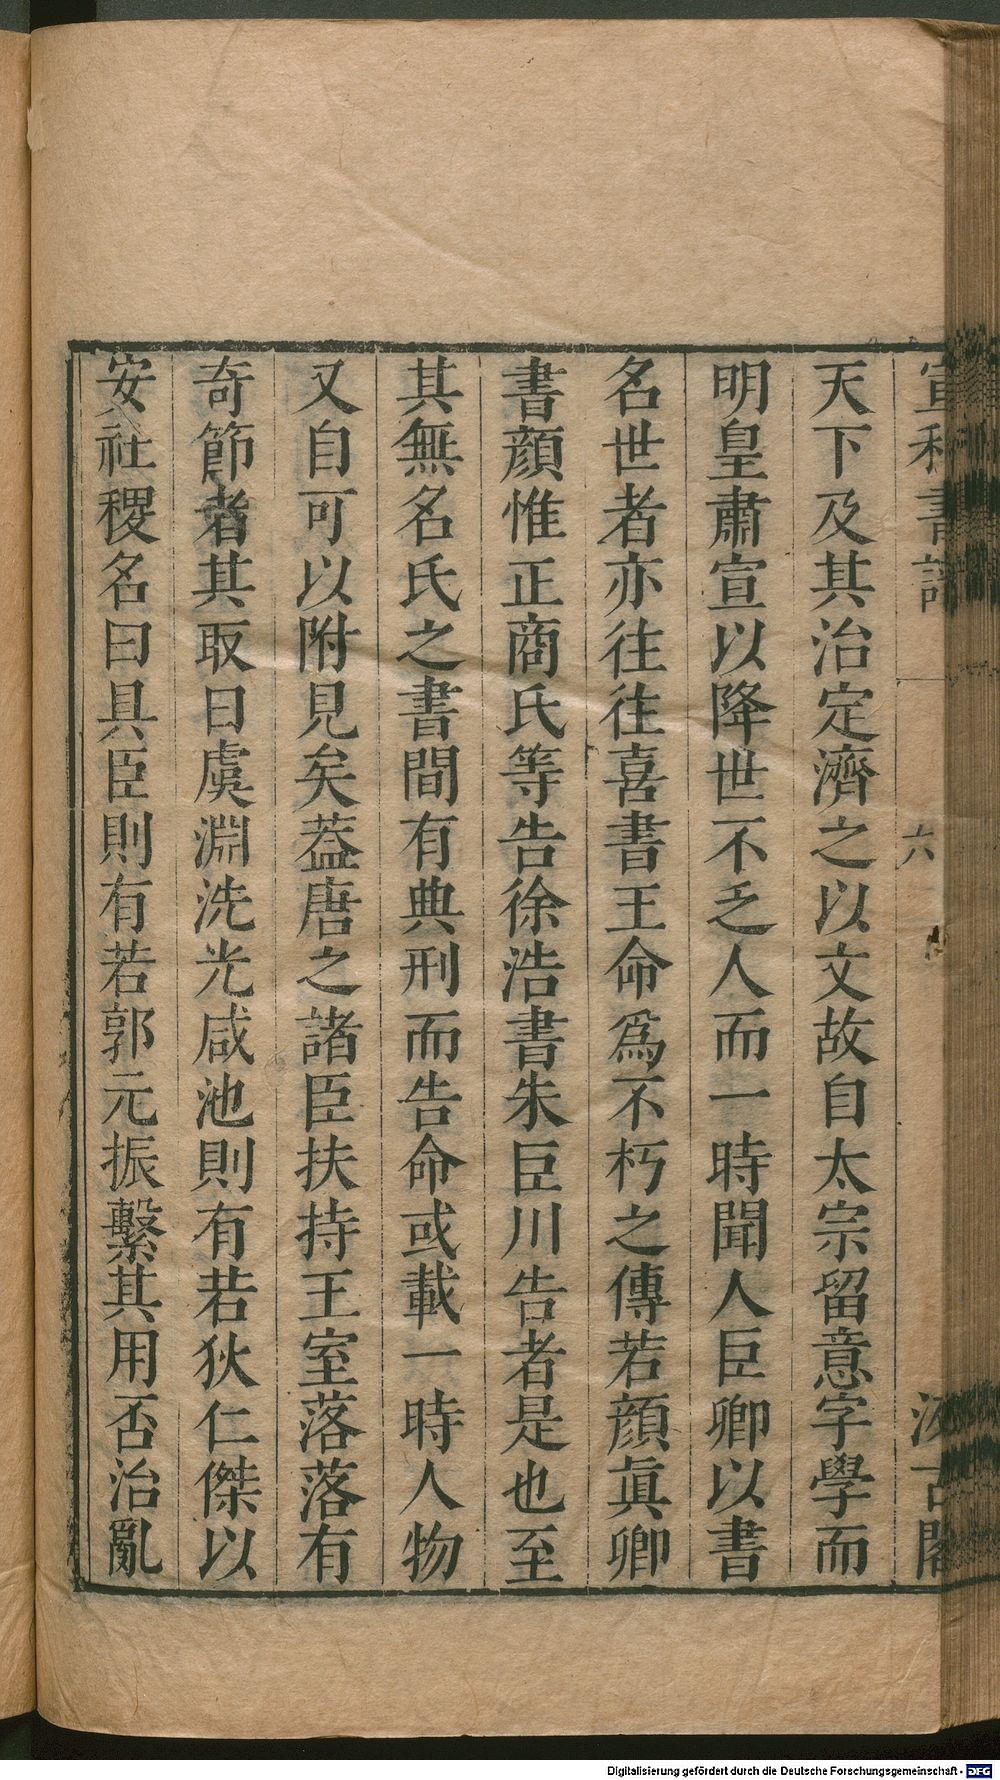 宣和書譜 六 汲古閣
天下及其治定濟之以文故自太宗留意字學而
明皇肅宣以降世不乏人而一時聞人臣卿以書
名世者亦往往喜書王命爲不朽之傳若顔眞卿
書顔惟正商氏等告徐浩書朱臣川告者是也至
其無名氏之書間有典刑而告命或載一時人物
又自可以附見矣葢唐之諸臣扶持王室落落有
奇節者其取日虞淵洗光咸池則有若狄仁傑以
安社稷名曰具臣則有若郭元振繫其用否治亂
Digitalisierung gefördert durch die Deutsche Forschungsgemeinschaft - DFG